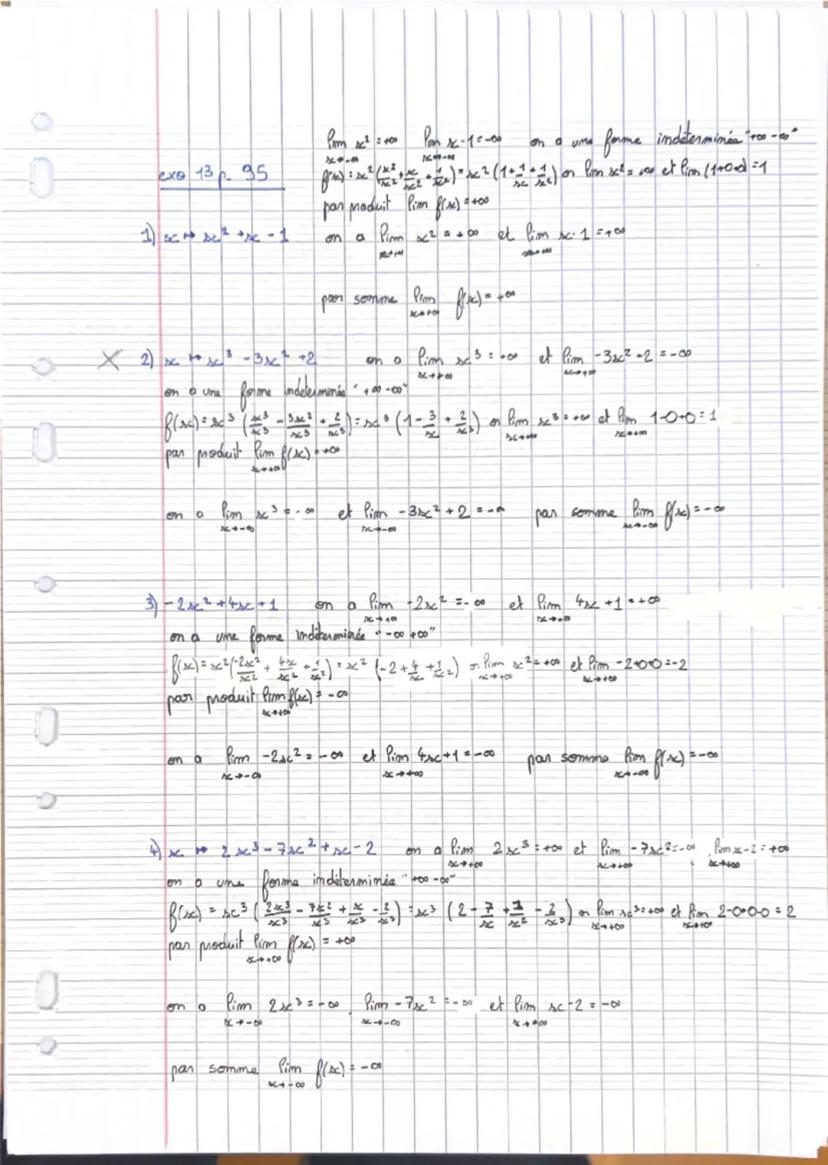 lim x² = +∞ lim x-1 = -∞ on a une forme indéterminée "+∞ -∞"
x→-∞ x→-∞
exo 13 p. 95
f(x) = x² (x²/x² + x/x² - 1/x²) = x² (1 + 1/x + 1/x²) or lim x² = +∞ et lim (1+0+0) = 1
par produit lim f(x) = +∞
1) x ↦ x² + x - 1 on a lim x² = +∞ et lim x-1 = +∞
x→+∞ x→+∞
par somme lim f(x) = +∞
x→+∞
× 2) x ↦ x³ - 3x² + 2 on a lim x³ = +∞ et lim -3x² + 2 = -∞
x→+∞ x→+∞
on a une forme indéterminée "+∞ -∞"
f(x) = x³ (x³/x³ - 3x²/x³ + 2/x³) = x³ (1 - 3/x + 2/x³) or lim x³ = +∞ et lim 1-0+0 = 1
x→+∞ x→+∞
par produit lim f(x) = +∞
x→+∞
on a lim x³ = -∞ et lim -3x² + 2 = -∞ par somme lim f(x) = -∞
x→-∞ x→-∞ x→-∞
3) -2x² + 4x + 1 on a lim -2x² = -∞ et lim 4x + 1 = +∞
x→+∞ x→+∞
on a une forme indéterminée "-∞ +∞"
f(x) = x² (-2x²/x² + 4x/x² + 1/x²) = x² (-2 + 4/x + 1/x²) or lim x² = +∞ et lim -2+0+0 = -2
x→+∞ x→+∞
par produit lim f(x) = -∞
x→+∞
on a lim -2x² = -∞ et lim 4x+1 = -∞ par somme lim f(x) = -∞
x→-∞ x→+∞ x→-∞
4) x ↦ 2x³ - 7x² + x - 2 on a lim 2x³ = +∞ et lim -7x² = -∞, lim x-2 = +∞
x→+∞ x→+∞ x→+∞
on a une forme indéterminée "+∞ -∞"
f(x) = x³ (2x³/x³ - 7x²/x³ + x/x³ - 2/x³) = x³ (2 - 7/x + 1/x² - 2/x³) or lim x³ = +∞ et lim 2-0+0-0 = 2
x→+∞ x→+∞
par produit lim f(x) = +∞
x→+∞
on a lim 2x³ = -∞, lim -7x² = -∞ et lim x-2 = -∞
x→-∞ x→-∞
par somme lim f(x) = -∞
x→-∞